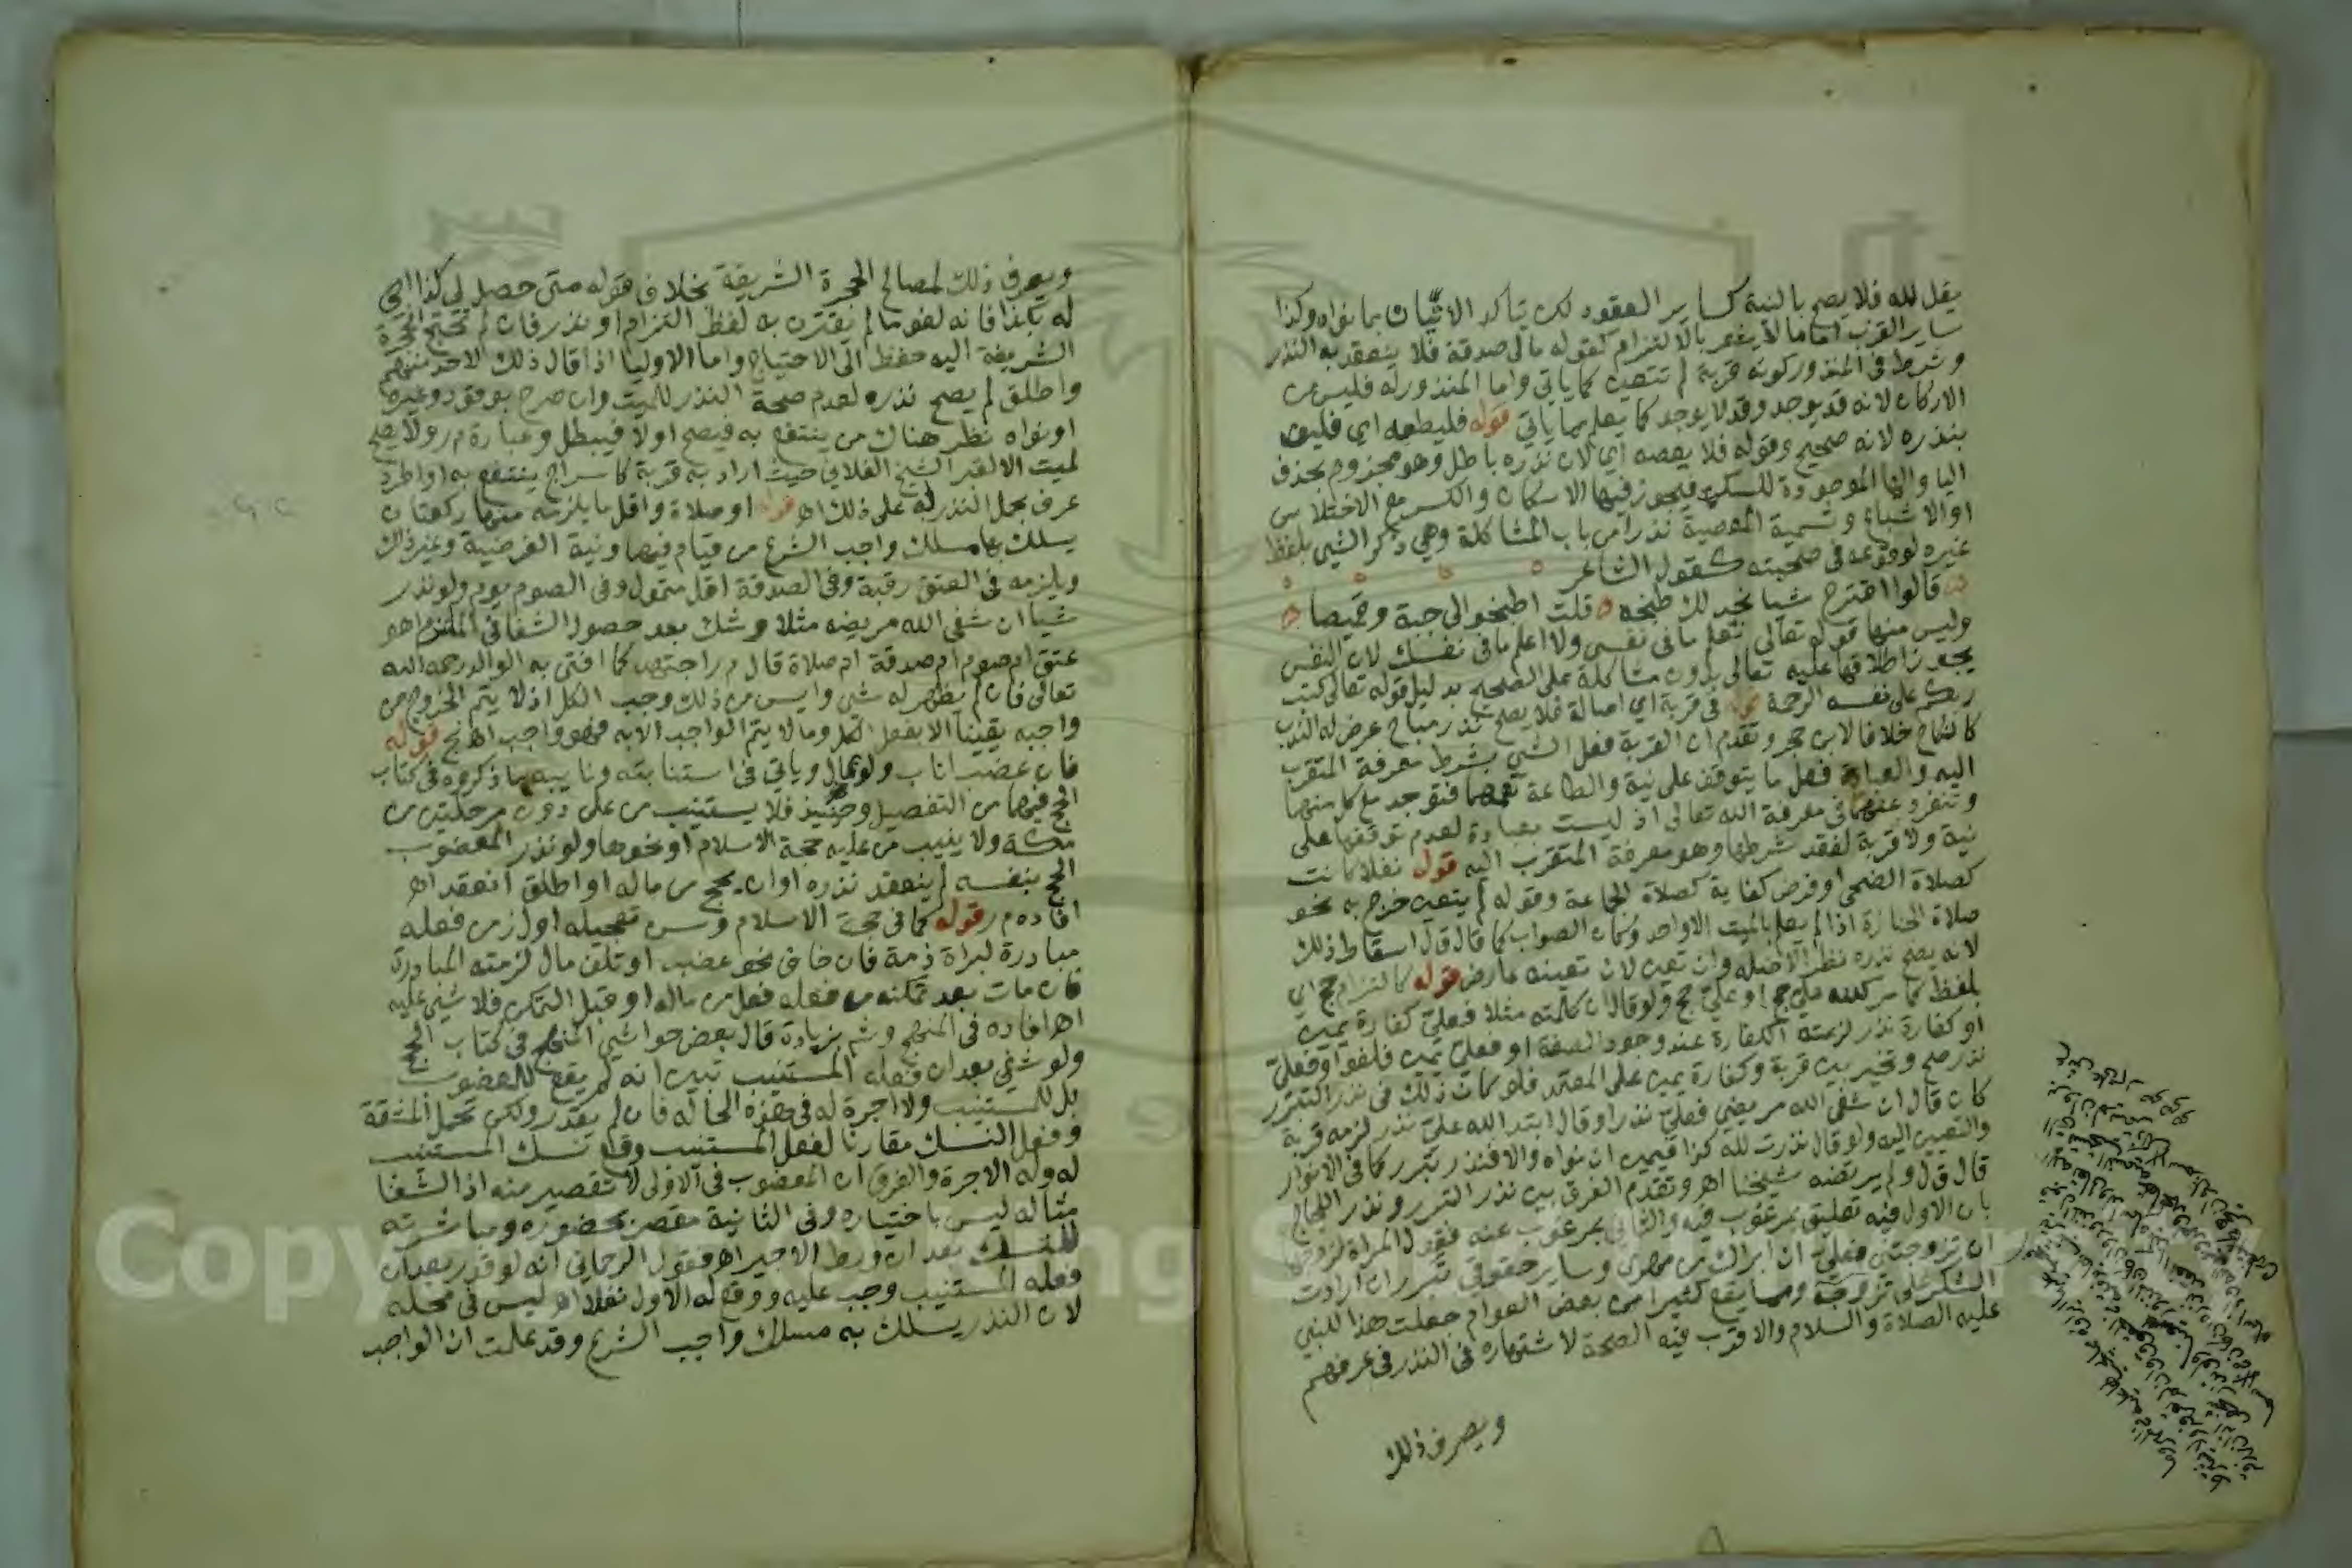 يقل لله فلا يصح بالنية كساير العقود لكن يتاكد الاتيان بما نواه وكذا
ساير القرب اما ما لا يشعر بالالتزام كقوله مالى صدقة فلا ينعقد به النذر
وشرط فى المنذور كونه قربة لم تتعين كما ياتي واما المنذور له فليس من
الاركان لانه قد يوجد وقد لا يوجد كما يعلم مما ياتي قوله فليطعه اي فليف
بنذره لانه صحيح وقوله فلا يعصه اي لان نذره باطل وهو مجزوم بحذف
اليا والها الموجودة للسكت فيجوز فيها الاسكان والكسر مع الاختلاس
او الاشباع وتسمية المعصية نذرا من باب المشاكلة وهي ذكر الشي بلفظ
غيره لوقوعه فى صحبته كقول الشاعر
قالوا اقترح شيا نجد لك طبخه قلت اطبخوا لى جبة وقميصا
وليس منها قوله تعالى تعلم ما فى نفسى ولا اعلم ما فى نفسك لان النفس
يجوز اطلاقها عليه تعالى بدون مشاكلة على الصحيح بدليل قوله تعالى كتب
ربكم على نفسه الرحمة قوله فى قربة اي اصالة فلا يصح نذر مباح عرض له الندب
كالنكاح خلافا لابن حجر وتقدم ان القربة فعل الشي بشرط معرفة المتقرب
اليه والعبادة فعل ما يتوقف على نية والطاعة تعمهما فتوجد مع كل منهما
وتنفرد عنهما فى معرفة الله تعالى اذ ليست بعبادة لعدم توقفها على
نية ولا قربة لفقد شرطها وهو معرفة المتقرب اليه قوله نفلا كانت
كصلاة الضحى او فرض كفاية كصلاة الجماعة وقوله لم يتعين خرج به نحو
صلاة الجنازة اذا لم يعلم بالميت الا واحد وكان الصواب كما قال ق ل اسقاط ذلك
لانه يصح نذره نظرا لاصله وان تعين لان تعينه عارض قوله كالتزام حج اي
بلفظ كما مر كلله علي حج او علي حج ولو قال ان كلمته مثلا فعلي كفارة يمين
او كفارة نذر لزمته الكفارة عند وجود الصفة او فعلي يمين فلغوا وفعلي
نذر صح وتخير بين قربة وكفارة يمين على المعتمد فلو كان ذلك فى نذر التبرر
كان قال ان شفى الله مريضي فعلي نذر او قال ابتدا لله علي نذر لزمه قربة
والتعيين اليه ولو قال نذرت لله كذا فيمين ان نواه والا فنذر تبرر كما فى الانوار
قال ق ل ولم يرتضه شيخنا اهـ وتقدم الفرق بين نذر التبرر ونذر اللجاج
بان الاول فيه تعليق بمرغوب فيه والثاني بمرغوب عنه فقول المراة لزوجها
ان تزوجتني فعلي ان ابراك من مهرى وساير حقوقي تبرر ان ارادت
الشكر على تزوجه ومما يقع كثيرا من بعض العوام جعلت هذا للنبي
عليه الصلاة والسلام والاقرب فيه الصحة لاشتهاره فى النذر فى عرفهم
ويصرف ذلك
ويصرف ذلك لمصالح الحجرة الشريفة بخلاف قوله متى حصل لي كذا اجي
له بكذا فانه لغو ما لم يقترن به لفظ التزام او نذر فان لم تحتج الحجرة
الشريفة اليه حفظ الى الاحتياج واما الاوليا اذا قال ذلك لاحد منهم
واطلق لم يصح نذره لعدم صحة النذر للميت وان صرح بوقود وغيره
او نواه نظر هناك من ينتفع به فيصح اولا فيبطل وعبارة م ر ولا يصح
لميت الا لقبر الشيخ الفلاني حيث اراد به قربة كاسراج ينتفع به او اطرد
عرف بحمل النذر له على ذلك اهـ قوله او صلاة واقل ما يلزمه منها ركعتان
يسلك بها مسلك واجب الشرع من قيام فيها ونية الفرضية وغير ذلك
ويلزمه فى العتق رقبة وفى الصدقة اقل متمول وفى الصوم يوم ولو نذر
شيا ان شفى الله مريضه مثلا وشك بعد حصول الشفا فى الملتزم اهو
عتق ام صوم ام صدقة ام صلاة قال م ر اجتهد كما افتى به الوالد رحمه الله
تعالى فان لم يظهر له شى وايس من ذلك وجب الكل اذ لا يتم الخروج من
واجبه يقينا الا بفعل الكل وما لا يتم الواجب الا به فهو واجب اهـ قوله
فان عضب اناب ولو بمال وياتي فى استنابته ونايبه ما ذكروه فى كتاب
الحج فيهما من التفصيل وحينيذ فلا يستنيب من على دون مرحلتين من
مكة ولا ينيب من عليه حجة الاسلام او نحوها ولو نذر المعضوب
الحج بنفسه لم ينعقد نذره او ان يحج من ماله او اطلق انعقد اهـ
افاده م ر قوله كما فى حجة الاسلام وسن تعجيله اول زمن فعله
مبادرة لبراة ذمة فان خاف نحو عضب او تلف مال لزمته المبادرة
فان مات بعد تمكنه من فعله فعل من ماله او قبل التمكن فلا شي عليه
اهـ افاده فى المنهج وش م ر بزيادة قال بعض حواشي المنهج فى كتاب الحج
ولو شفي بعد ان فعله المستنيب تبين انه لم يقع للمعضوب
بل للمستنيب ولا اجرة له فى هذه الحالة فان لم يقدر ولكن تحمل المشقة
وفعل النسك مقارنا لفعل المستنيب وقع نسك المستنيب
له وله الاجرة والفرق ان المعضوب فى الاولى لا تقصير منه اذ الشفا
مثاله ليس باختياره وفى الثانية مقصر بحضوره ومباشرته
للنسك بعد ان ورط الاجير اهـ فقول الرحماني انه لو قدر بعد ان
فعله المستنيب وجب عليه ووقع له الاول نفلا اهـ ليس فى محله
لان النذر يسلك به مسلك واجب الشرع وقد علمت ان الواجب